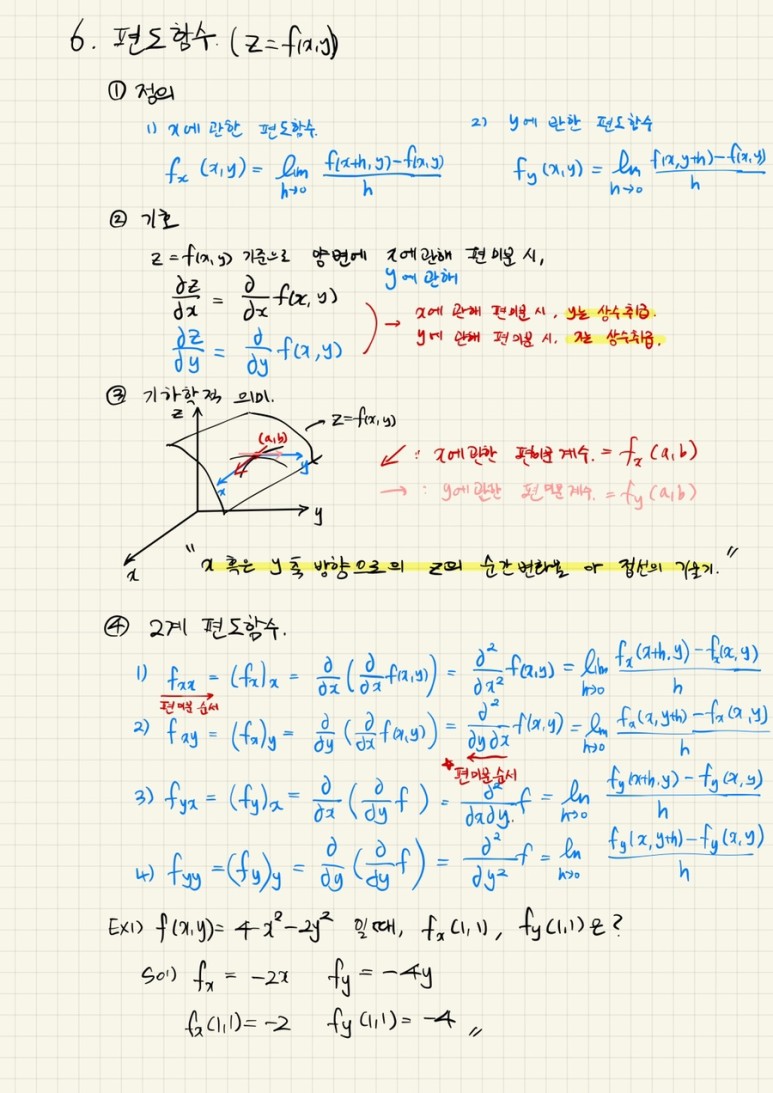 6. 편도함수. (z=f(x,y))
① 정의
1) x에 관한 편도함수. 2) y에 관한 편도함수
fₓ(x,y) = lim_{h→0} (f(x+h,y)-f(x,y))/h f_y(x,y) = lim_{h→0} (f(x,y+h)-f(x,y))/h
② 기호
z=f(x,y) 기준으로 양변에 x에 관해 편미분 시,
y에 관해
∂z/∂x = ∂/∂x f(x,y)
→ x에 관해 편미분 시, y는 상수취급.
y에 관해 편미분 시, x는 상수취급.
∂z/∂y = ∂/∂y f(x,y)
③ 기하학적 의미.
z
z=f(x,y)
(a,b)
y
x
y
x
↙ : x에 관한 편미분계수. = fₓ(a,b)
→ : y에 관한 편미분계수. = f_y(a,b)
"x 혹은 y축 방향으로의 z의 순간변화율 or 접선의 기울기."
④ 2계 편도함수.
1) fₓₓ = (fₓ)ₓ = ∂/∂x (∂/∂x f(x,y)) = ∂²/∂x² f(x,y) = lim_{h→0} (fₓ(x+h,y)-fₓ(x,y))/h
편미분 순서
2) f_xy = (fₓ)_y = ∂/∂y (∂/∂x f(x,y)) = ∂²/∂y∂x f(x,y) = lim_{h→0} (fₓ(x,y+h)-fₓ(x,y))/h
* 편미분순서
3) f_yx = (f_y)ₓ = ∂/∂x (∂/∂y f) = ∂²/∂x∂y f = lim_{h→0} (f_y(x+h,y)-f_y(x,y))/h
4) f_yy = (f_y)_y = ∂/∂y (∂/∂y f) = ∂²/∂y² f = lim_{h→0} (f_y(x,y+h)-f_y(x,y))/h
EX1) f(x,y) = 4-x²-2y² 일때, fₓ(1,1), f_y(1,1)은?
Sol) fₓ = -2x f_y = -4y
fₓ(1,1) = -2 f_y(1,1) = -4 〃